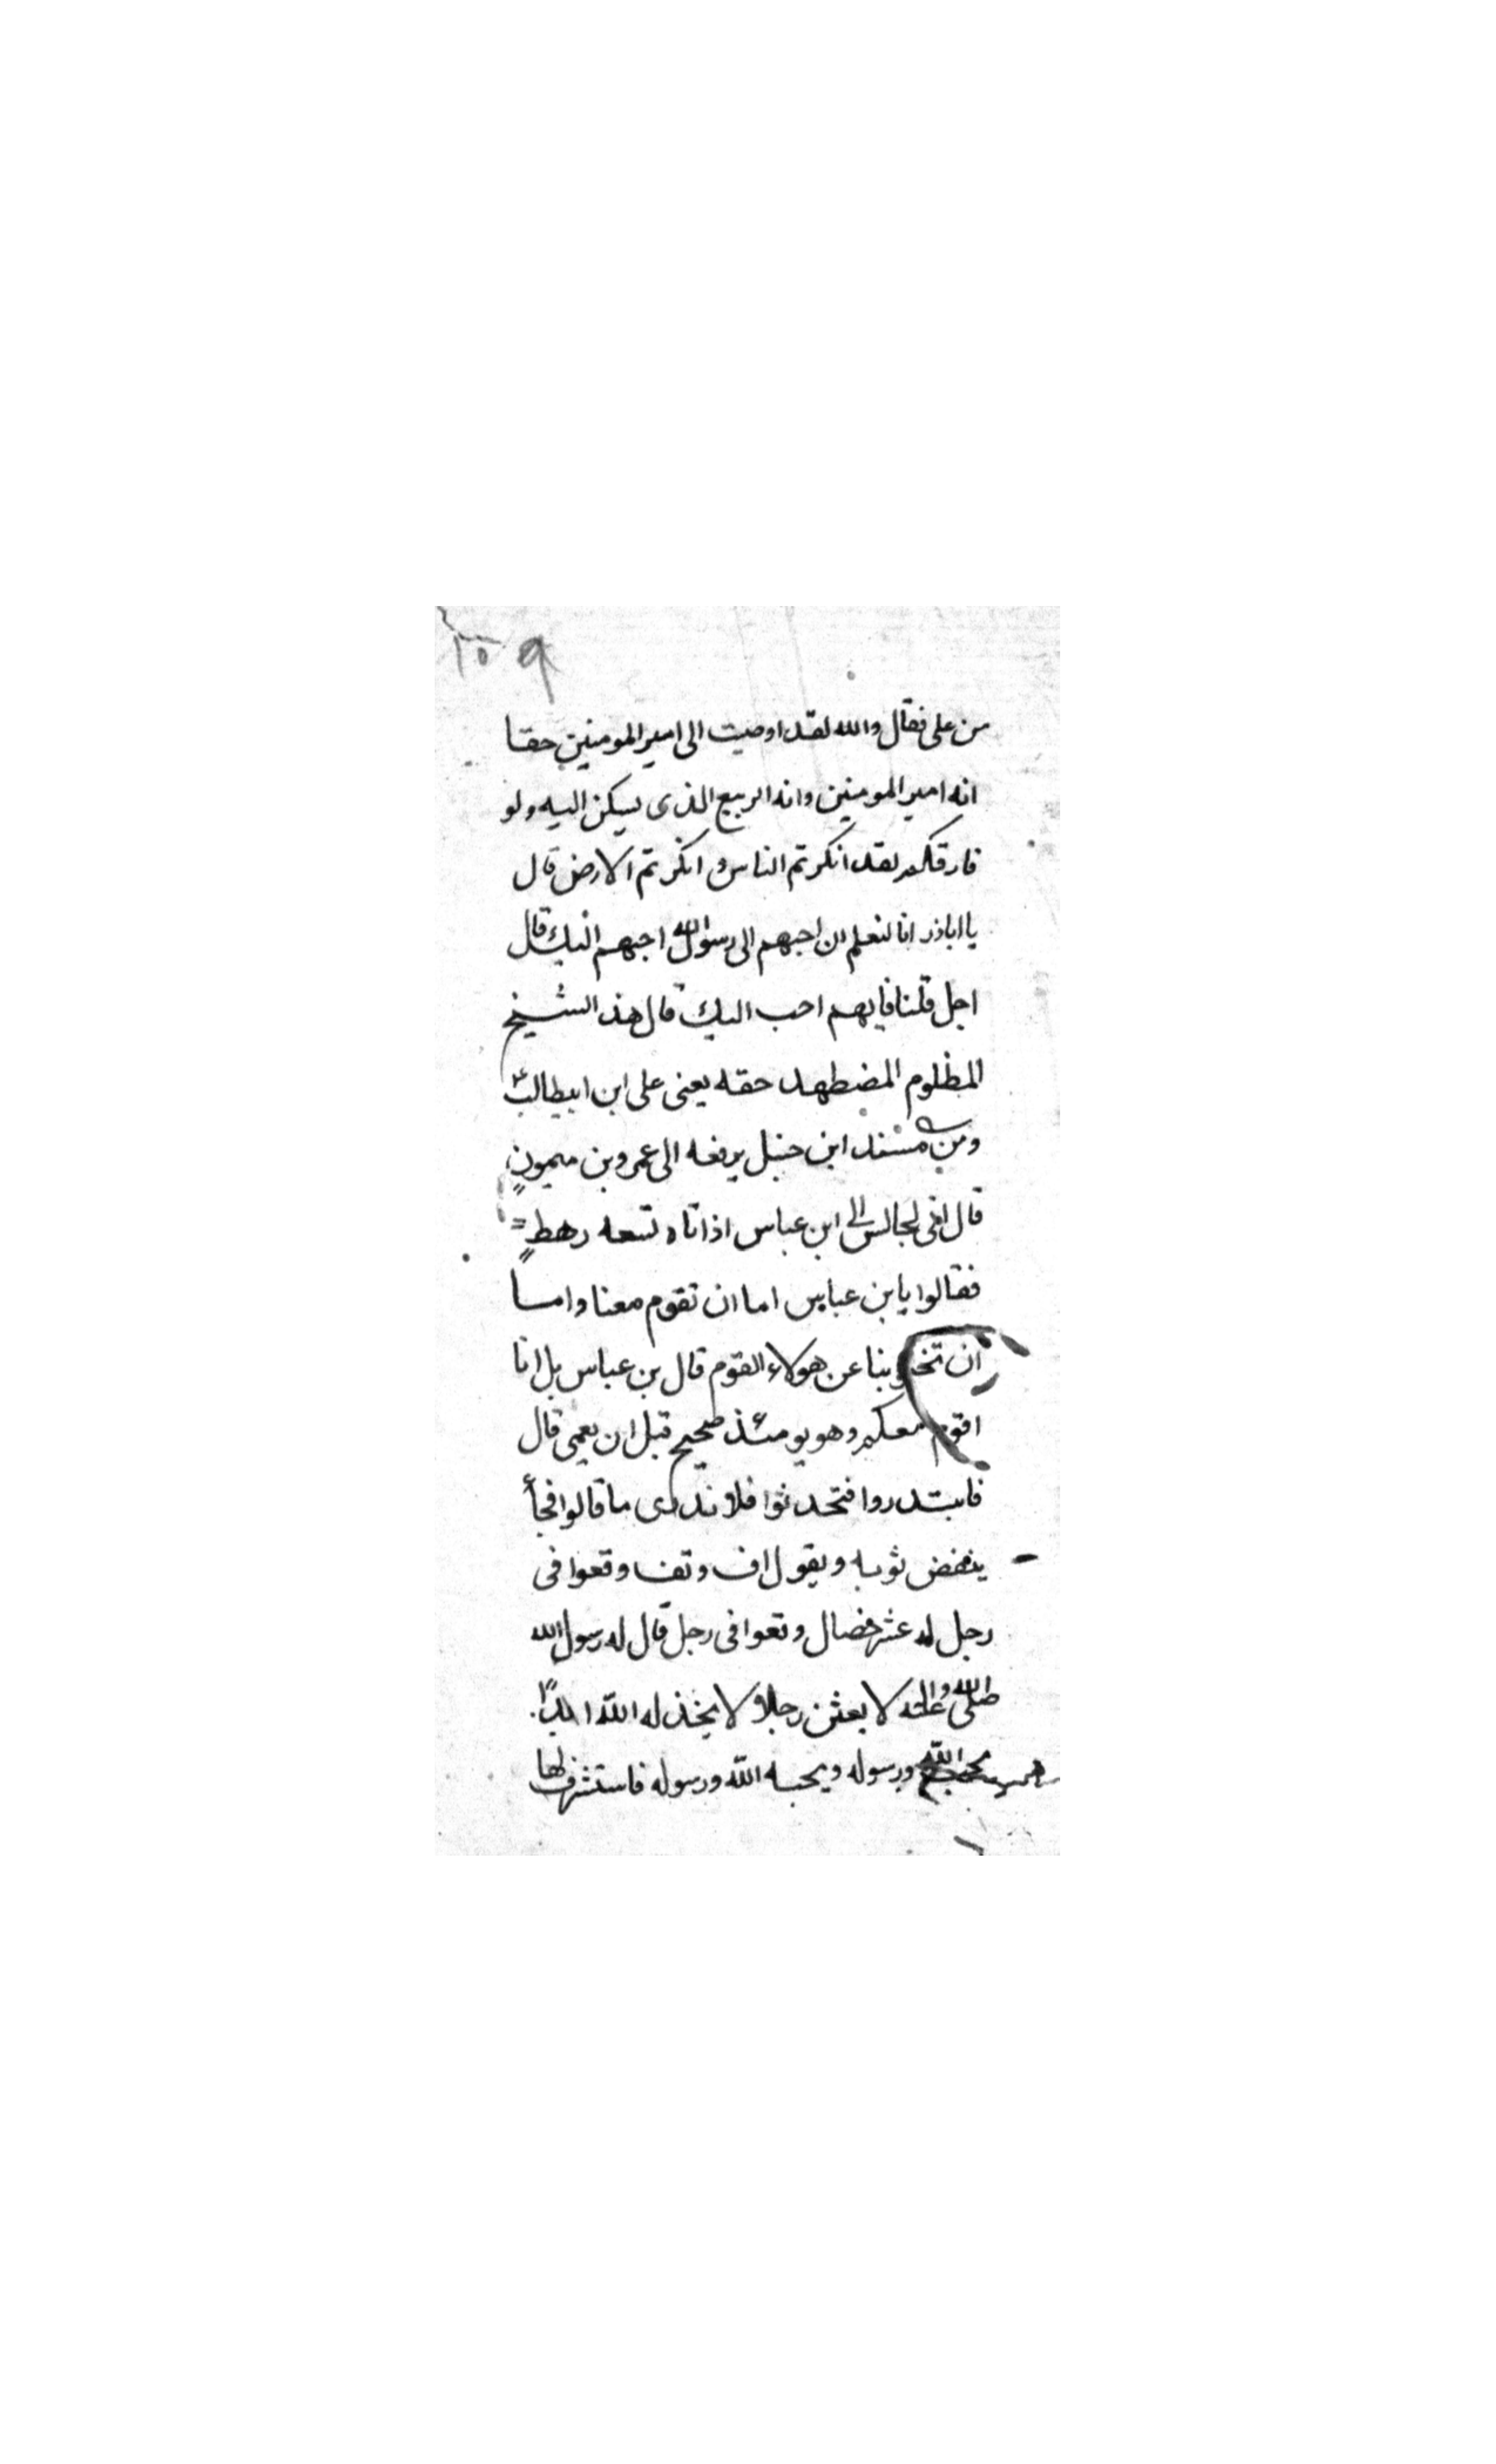 ١٥٩
من على فقال والله لقد اوصيت الى امير المومنين حقا
انه امير المومنين وانه الربيع الذى يسكن اليه ولو
فارقكم لقد انكرتم الناس و انكرتم الارض قال
يا اباذر انا لنعلم ان احبهم الى رسول الله احبهم اليك قال
اجل قلنا فايهم احب اليك قال هذ الشيخ
المظلوم المضطهد حقه يعنى على ابن ابيطالب ع
ومن مسند ابن حنبل يرفعه الى عمرو بن ميمون
قال انى لجالس الى ابن عباس اذ اتاه تسعه رهط
فقالوا يابن عباس اما ان تقوم معنا واما
ان تخلو بنا عن هولاء القوم قال بن عباس بل انا
اقوم معكم وهو يومئذ صحيح قبل ان يعمى قال
فابتدروا فتحدثوا فلا ندرى ما قالوا فجأ
ينفض ثوبه ويقول اف وتف وقعوا فى
رجل له عشر خصال وقعوا فى رجل قال له رسول الله
صلى الله عليه واله لا بعثن رجلا لا يخذله الله ابدًا
الله ورسوله ويحبه الله ورسوله فاستشرف لها